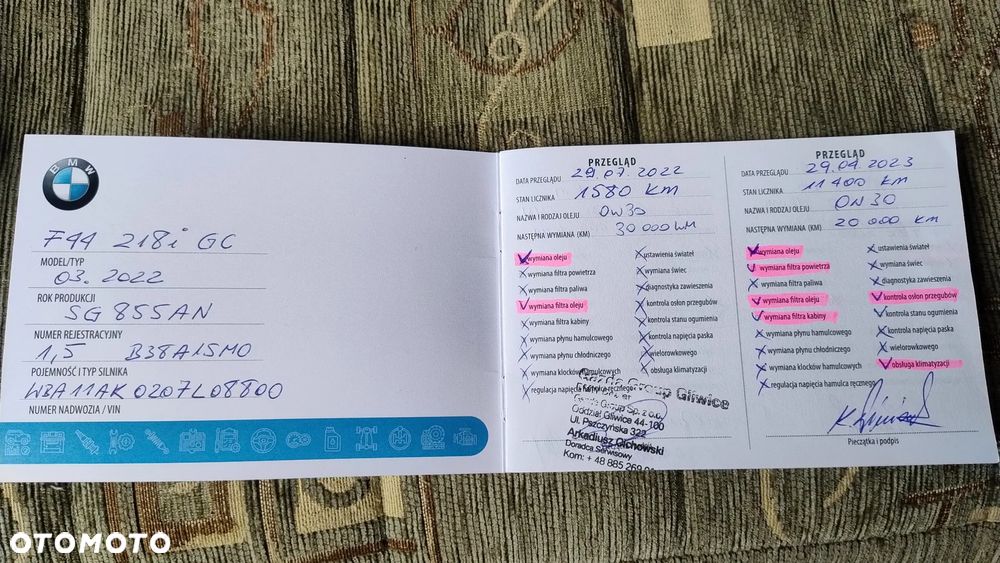 BMW
F44 218i GC
MODEL/TYP
03.2022
ROK PRODUKCJI
SG 855AN
NUMER REJESTRACYJNY
1,5 B38A15M0
POJEMNOŚĆ I TYP SILNIKA
WBA11AK0207L08800
NUMER NADWOZIA / VIN
PRZEGLĄD
DATA PRZEGLĄDU 29.07.2022
STAN LICZNIKA 1580 KM
NAZWA I RODZAJ OLEJU 0W30
NASTĘPNA WYMIANA (KM) 30 000 KM
wymiana oleju
wymiana filtra powietrza
wymiana filtra paliwa
wymiana filtra oleju
wymiana filtra kabiny
wymiana płynu hamulcowego
wymiana płynu chłodniczego
wymiana klocków hamulcowych
regulacja napięcia hamulca ręcznego
ustawienia świateł
wymiana świec
diagnostyka zawieszenia
kontrola osłon przegubów
kontrola stanu ogumienia
kontrola napięcia paska
wielorowkowego
obsługa klimatyzacji
Gazda Group Gliwice
Gazda Group Sp. z o.o.
Oddział Gliwice 44-100
Ul. Pszczyńska 322
Arkadiusz Cichowski
Doradca Serwisowy
Kom: + 48 885 269
PRZEGLĄD
DATA PRZEGLĄDU 29.04.2023
STAN LICZNIKA 11400 km
NAZWA I RODZAJ OLEJU 0W30
NASTĘPNA WYMIANA (KM) 20 000 km
wymiana oleju
wymiana filtra powietrza
wymiana filtra paliwa
wymiana filtra oleju
wymiana filtra kabiny
wymiana płynu hamulcowego
wymiana płynu chłodniczego
wymiana klocków hamulcowych
regulacja napięcia hamulca ręcznego
ustawienia świateł
wymiana świec
diagnostyka zawieszenia
kontrola osłon przegubów
kontrola stanu ogumienia
kontrola napięcia paska
wielorowkowego
obsługa klimatyzacji
Pieczątka i podpis
OTOMOTO